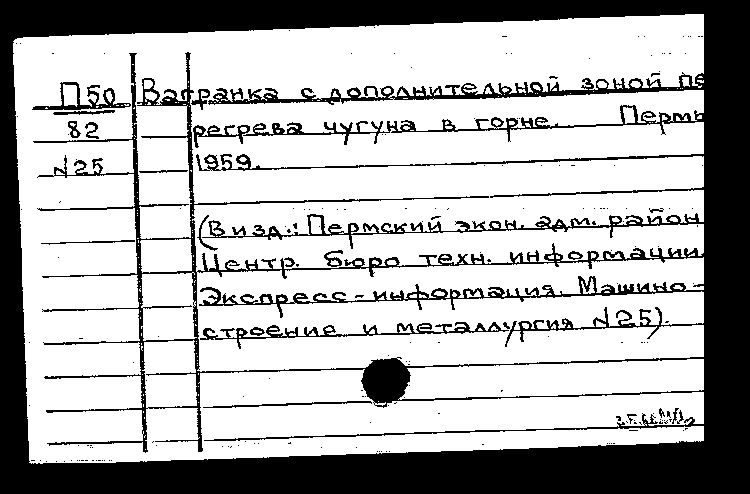 П50 Вагранка с дополнительной зоной пе
82 регрева чугуна в горне. Пермь
N25 1959.
(В изд.: Пермский экон. адм. район
Центр. бюро техн. информации.
Экспресс-информация. Машино-
строение и металлургия N25).